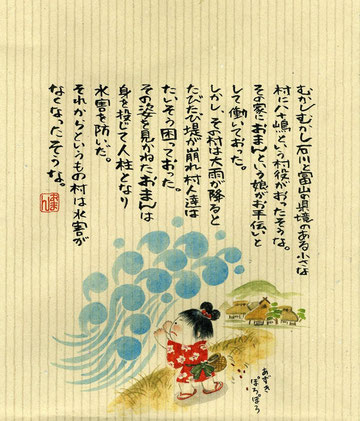 むかしむかし石川と富山の県境のある小さな
村に八十嶋という村役がおったそうな。
その家におまんという娘がお手伝いと
して働いておった。
しかし、その村は大雨が降ると
たびたび堤が崩れ村人達は
たいそう困っておった。
その姿を見かねたおまんは
身を投じて人柱となり
水害を防いだ。
それからというもの村は水害が
なくなったそうな。
あずき
ぽろぽろ